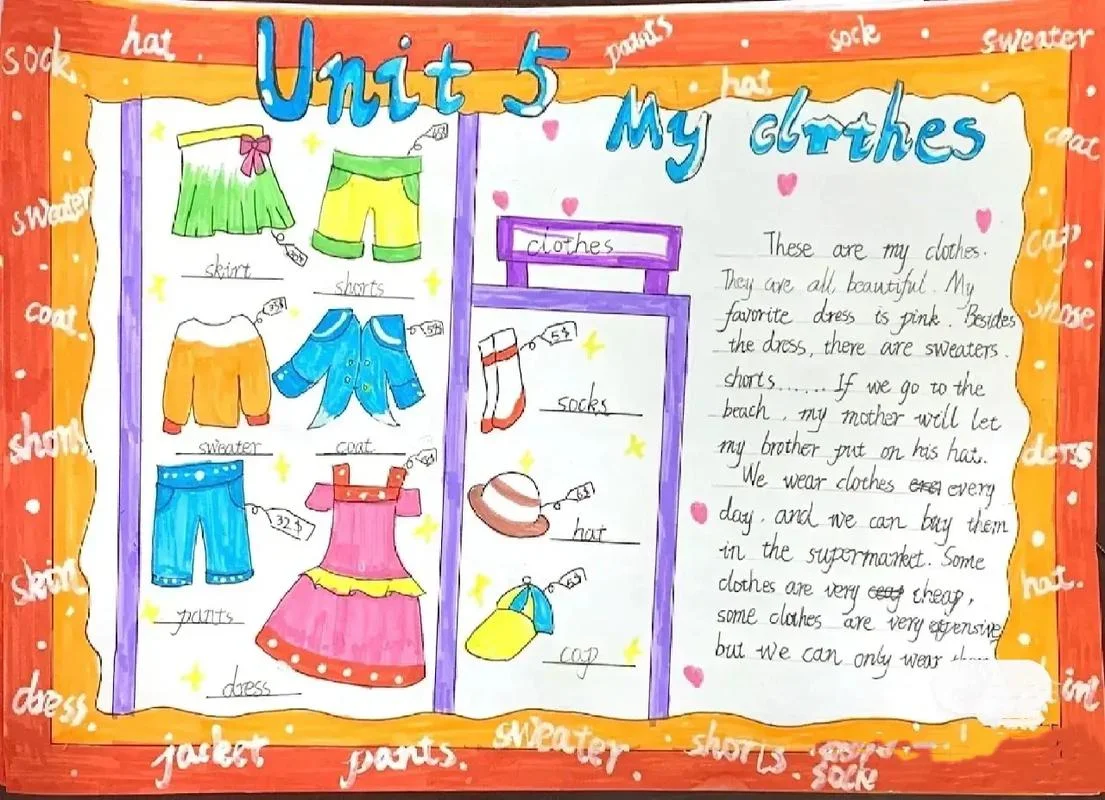 sock
hat
pants
sock
sweater
hat
Unit 5
My clothes
sweater
coat.
short
skirt
dress.
coat
cap
shose
derss
hat.
jacket
pants.
sweater
shorts.
sock
skirt
shorts
35$
5$
sweater
coat
32$
pants
dress
clothes
5$
socks
6$
hat
6$
cap
These are my clothes.
They are all beautiful. My
favorite dress is pink. Besides
the dress, there are sweaters.
shorts...... If we go to the
beach, my mother will let
my brother put on his hat.
We wear clothes every
day. and we can buy them
in the supermarket. Some
clothes are very cheap,
some clothes are very expensive
but we can only wear